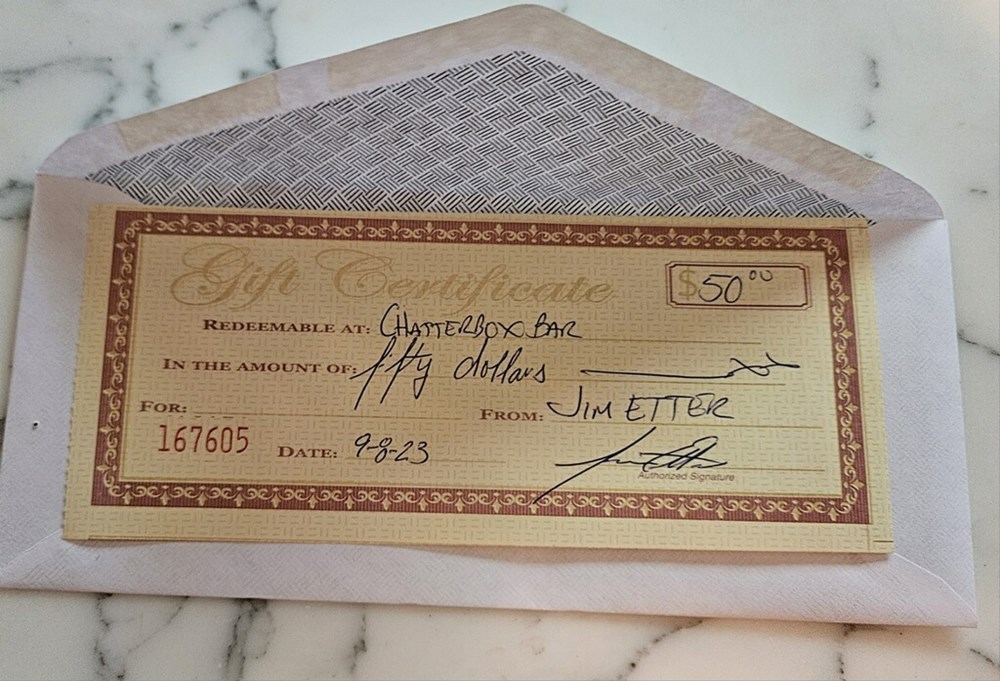 Gift Certificate
$50 00
REDEEMABLE AT: CHATTERBOX BAR
IN THE AMOUNT OF: fifty dollars
FOR:
FROM: JIM ETTER
167605
DATE: 9-8-23
Authorized Signature